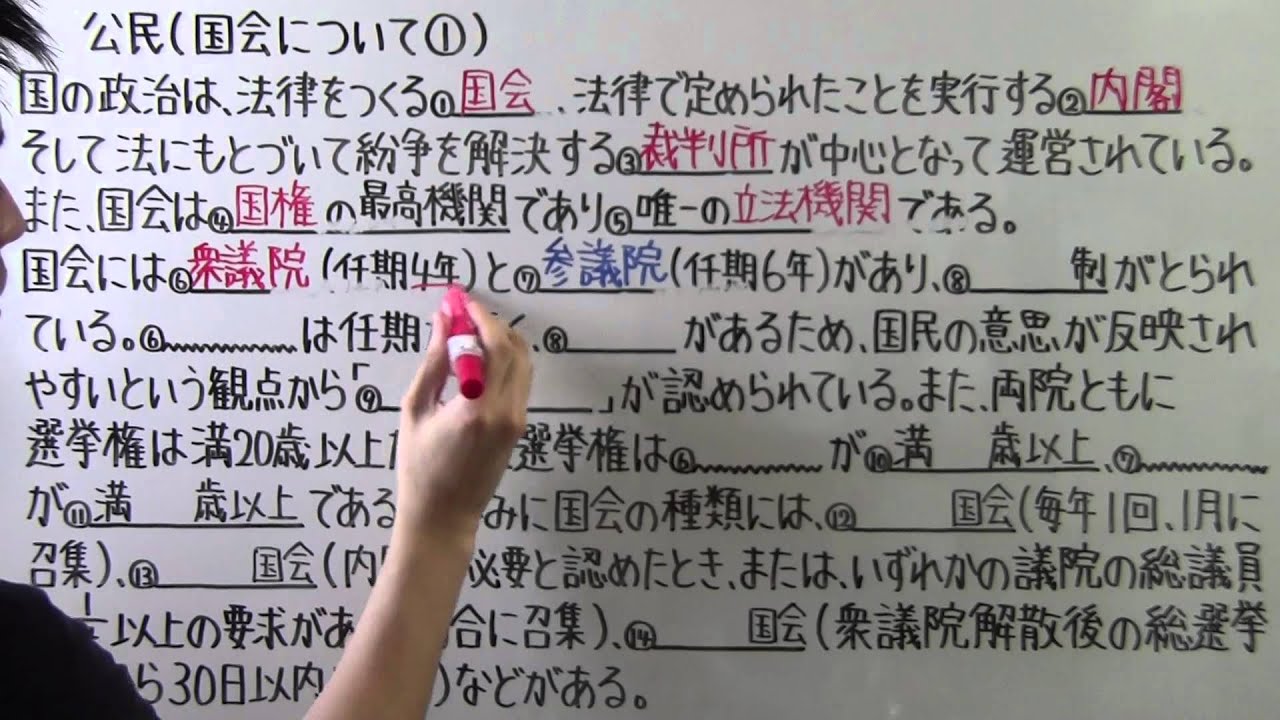 公民(国会について①)
国の政治は、法律をつくる①国会、法律で定められたことを実行する②内閣
そして法にもとづいて紛争を解決する③裁判所が中心となって運営されている。
また、国会は④国権の最高機関であり⑤唯一の立法機関である。
国会には⑥衆議院(任期4年)と⑦参議院(任期6年)があり、⑧ 制がとられ
ている。⑥ は任期 、⑧ があるため、国民の意思が反映され
やすいという観点から「⑨ 」が認められている。また、両院ともに
選挙権は満20歳以上 選挙権は⑥ が⑩満 歳以上、⑦
が⑪満 歳以上である みに国会の種類には、⑫ 国会(毎年1回、1月に
召集)、⑬ 国会(内 必要と認めたとき、または、いずれかの議院の総議員
以上の要求があ 合に召集)、⑭ 国会(衆議院解散後の総選挙
ら30日以内 )などがある。